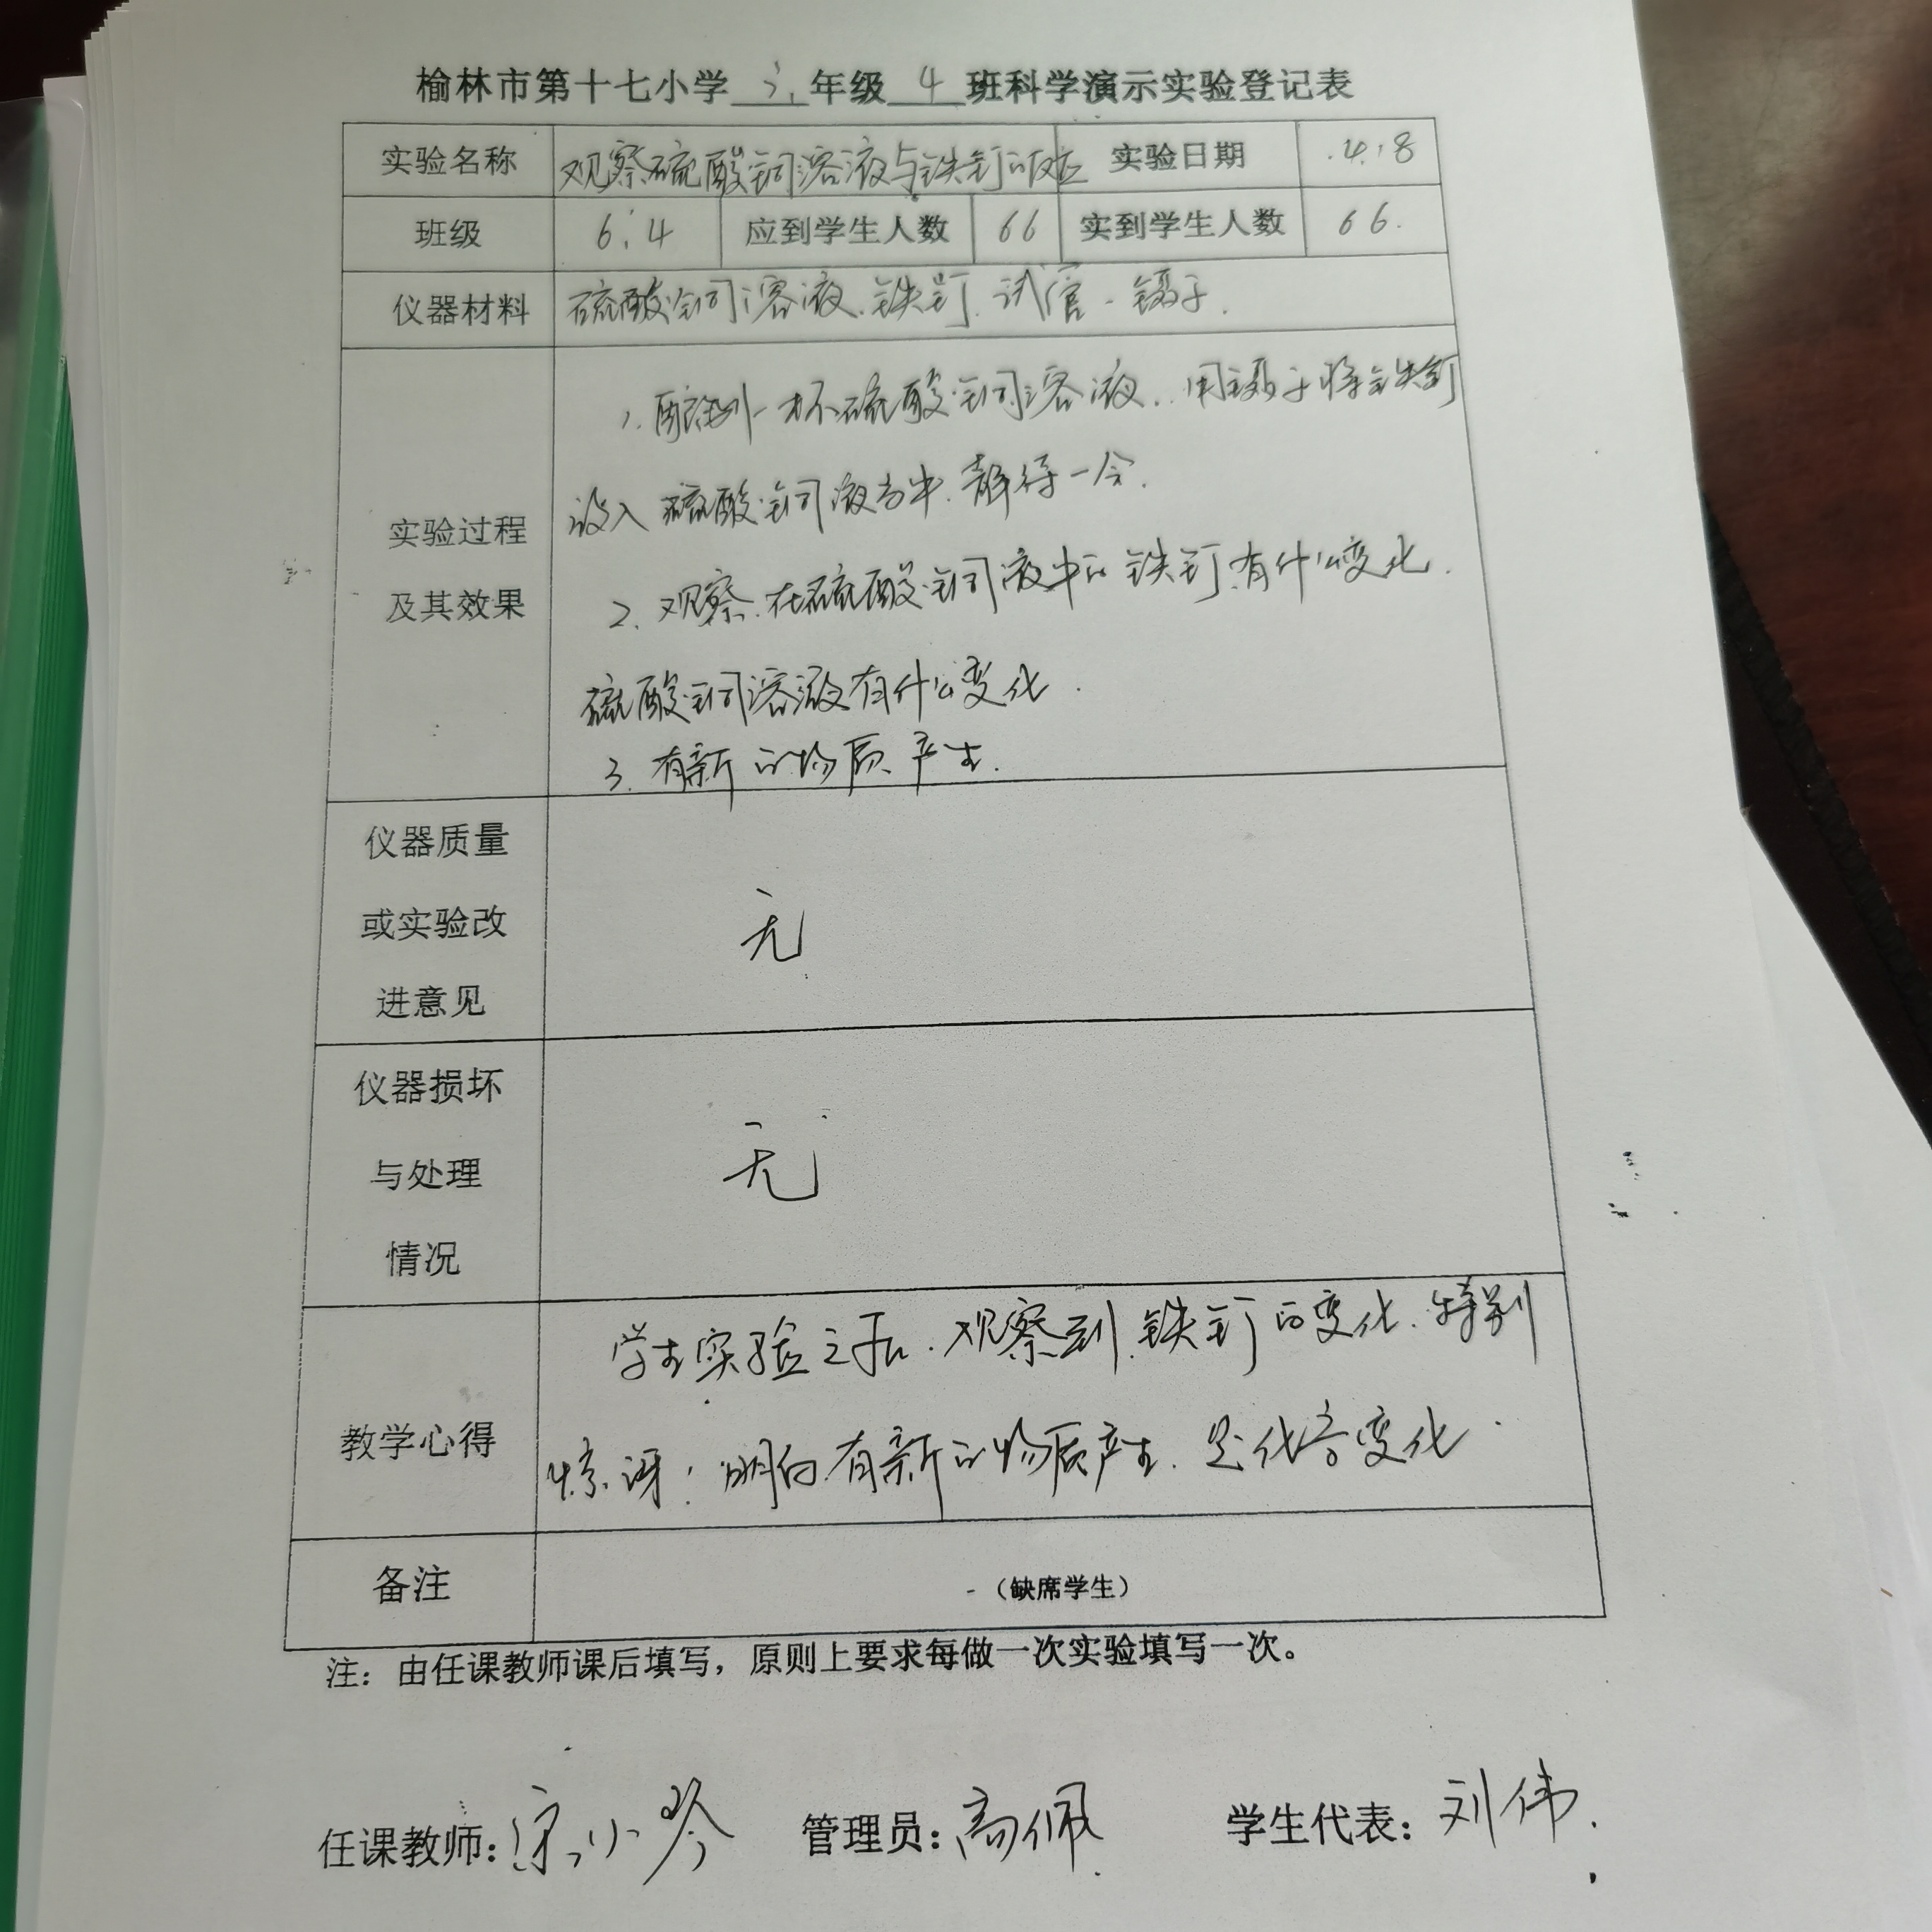 榆林市第十七小学 年级 4 班科学演示实验登记表
实验名称 观察硫酸铜溶液与铁钉的反应 实验日期 4.8
班级 6.4 应到学生人数 66 实到学生人数 66.
仪器材料 硫酸铜溶液.铁钉.试管.镊子.
1. 一杯硫酸铜溶液.用镊子将铁钉
实验过程 放入硫酸铜液体中.静待一会.
及其效果 2.观察.在硫酸铜液中的铁钉有什么变化.
硫酸铜溶液有什么变化.
3.有新的物质产生.
仪器质量
或实验改 无
进意见
仪器损坏
与处理 无
情况
学生实验之后.观察到铁钉的变化.特别
教学心得 惊讶!明白有新的物质产生.是化学变化.
备注 （缺席学生）
注：由任课教师课后填写，原则上要求每做一次实验填写一次。
任课教师：宋小琴 管理员：高佩 学生代表：刘伟.